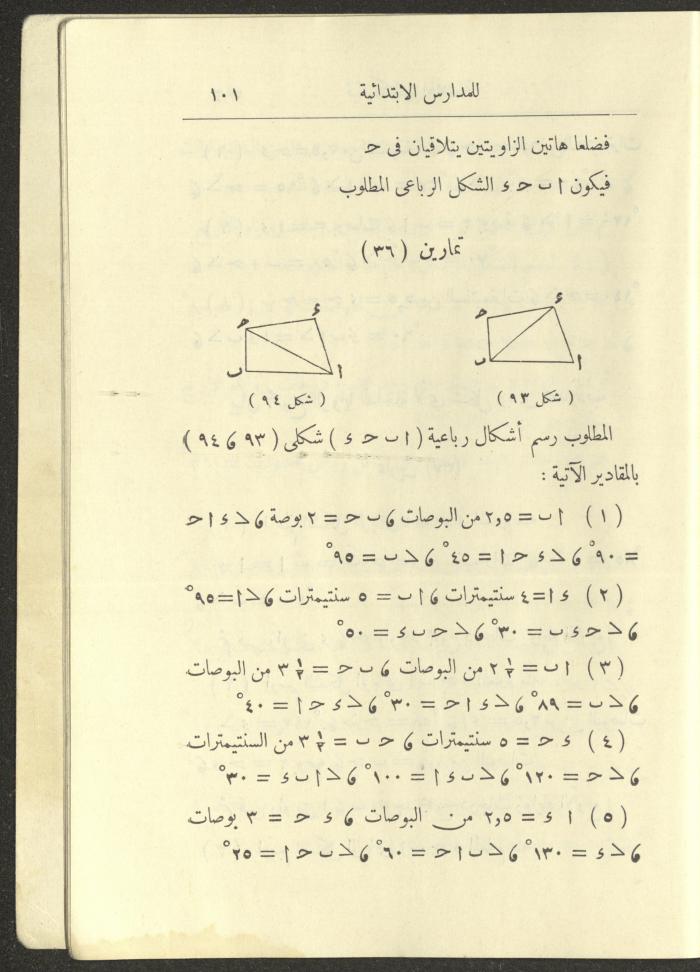 للمدارس الابتدائية ١٠١
فضلعا هاتين الزاويتين يتلاقيان فى حـ
فيكون ا ب حـ ء الشكل الرباعى المطلوب
تمارين (٣٦)
حـ ء ب ا
حـ ء ب ا
(شكل ٩٣) (شكل ٩٤)
المطلوب رسم أشكال رباعية (ا ب حـ ء) شكلى (٩٣ ، ٩٤)
بالمقادير الآتية :
(١) ا ب = ٢,٥ من البوصات ، ب حـ = ٢ بوصة ، > ء ا حـ
= ٩٠° ، > ء حـ ا = ٤٥° ، > ب = ٩٥°
(٢) ء ا = ٤ سنتيمترات ، ا ب = ٥ سنتيمترات ، > ا = ٩٥°
، > حـ ء ب = ٣٠° ، > حـ ب ء = ٥٠°
(٣) ا ب = ٢ ١/٢ من البوصات ، ب حـ = ٣ ١/٢ من البوصات
، > ب = ٨٩° ، > ء ا حـ = ٣٠° ، > ء حـ ا = ٤٠°
(٤) ء حـ = ٥ سنتيمترات ، حـ ب = ٣ ١/٢ من السنتيمترات
، > حـ = ١٢٠° ، > ب ء ا = ١٠٠° ، > ا ب ء = ٣٠°
(٥) ا ء = ٢,٥ من البوصات ، ء حـ = ٣ بوصات
، > ء = ١٣٠° ، > ب ا حـ = ٦٠° ، > ب حـ ا = ٢٥°